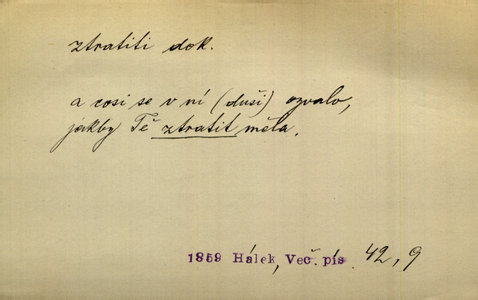 ztratiti dok.
a cosi se v ní (duši) ozvalo,
jakby Tě ztratit měla.
1859 Hálek, Več. pís. 42, 9